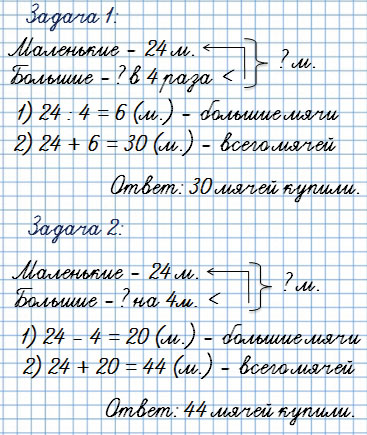 Задача 1:
Маленькие - 24 м.
Большие - ? в 4 раза <
? м.
1) 24 : 4 = 6 (м.) - большие мячи
2) 24 + 6 = 30 (м.) - всего мячей
Ответ: 30 мячей купили.
Задача 2:
Маленькие - 24 м.
Большие - ? на 4 м. <
? м.
1) 24 - 4 = 20 (м.) - большие мячи
2) 24 + 20 = 44 (м.) - всего мячей
Ответ: 44 мячей купили.